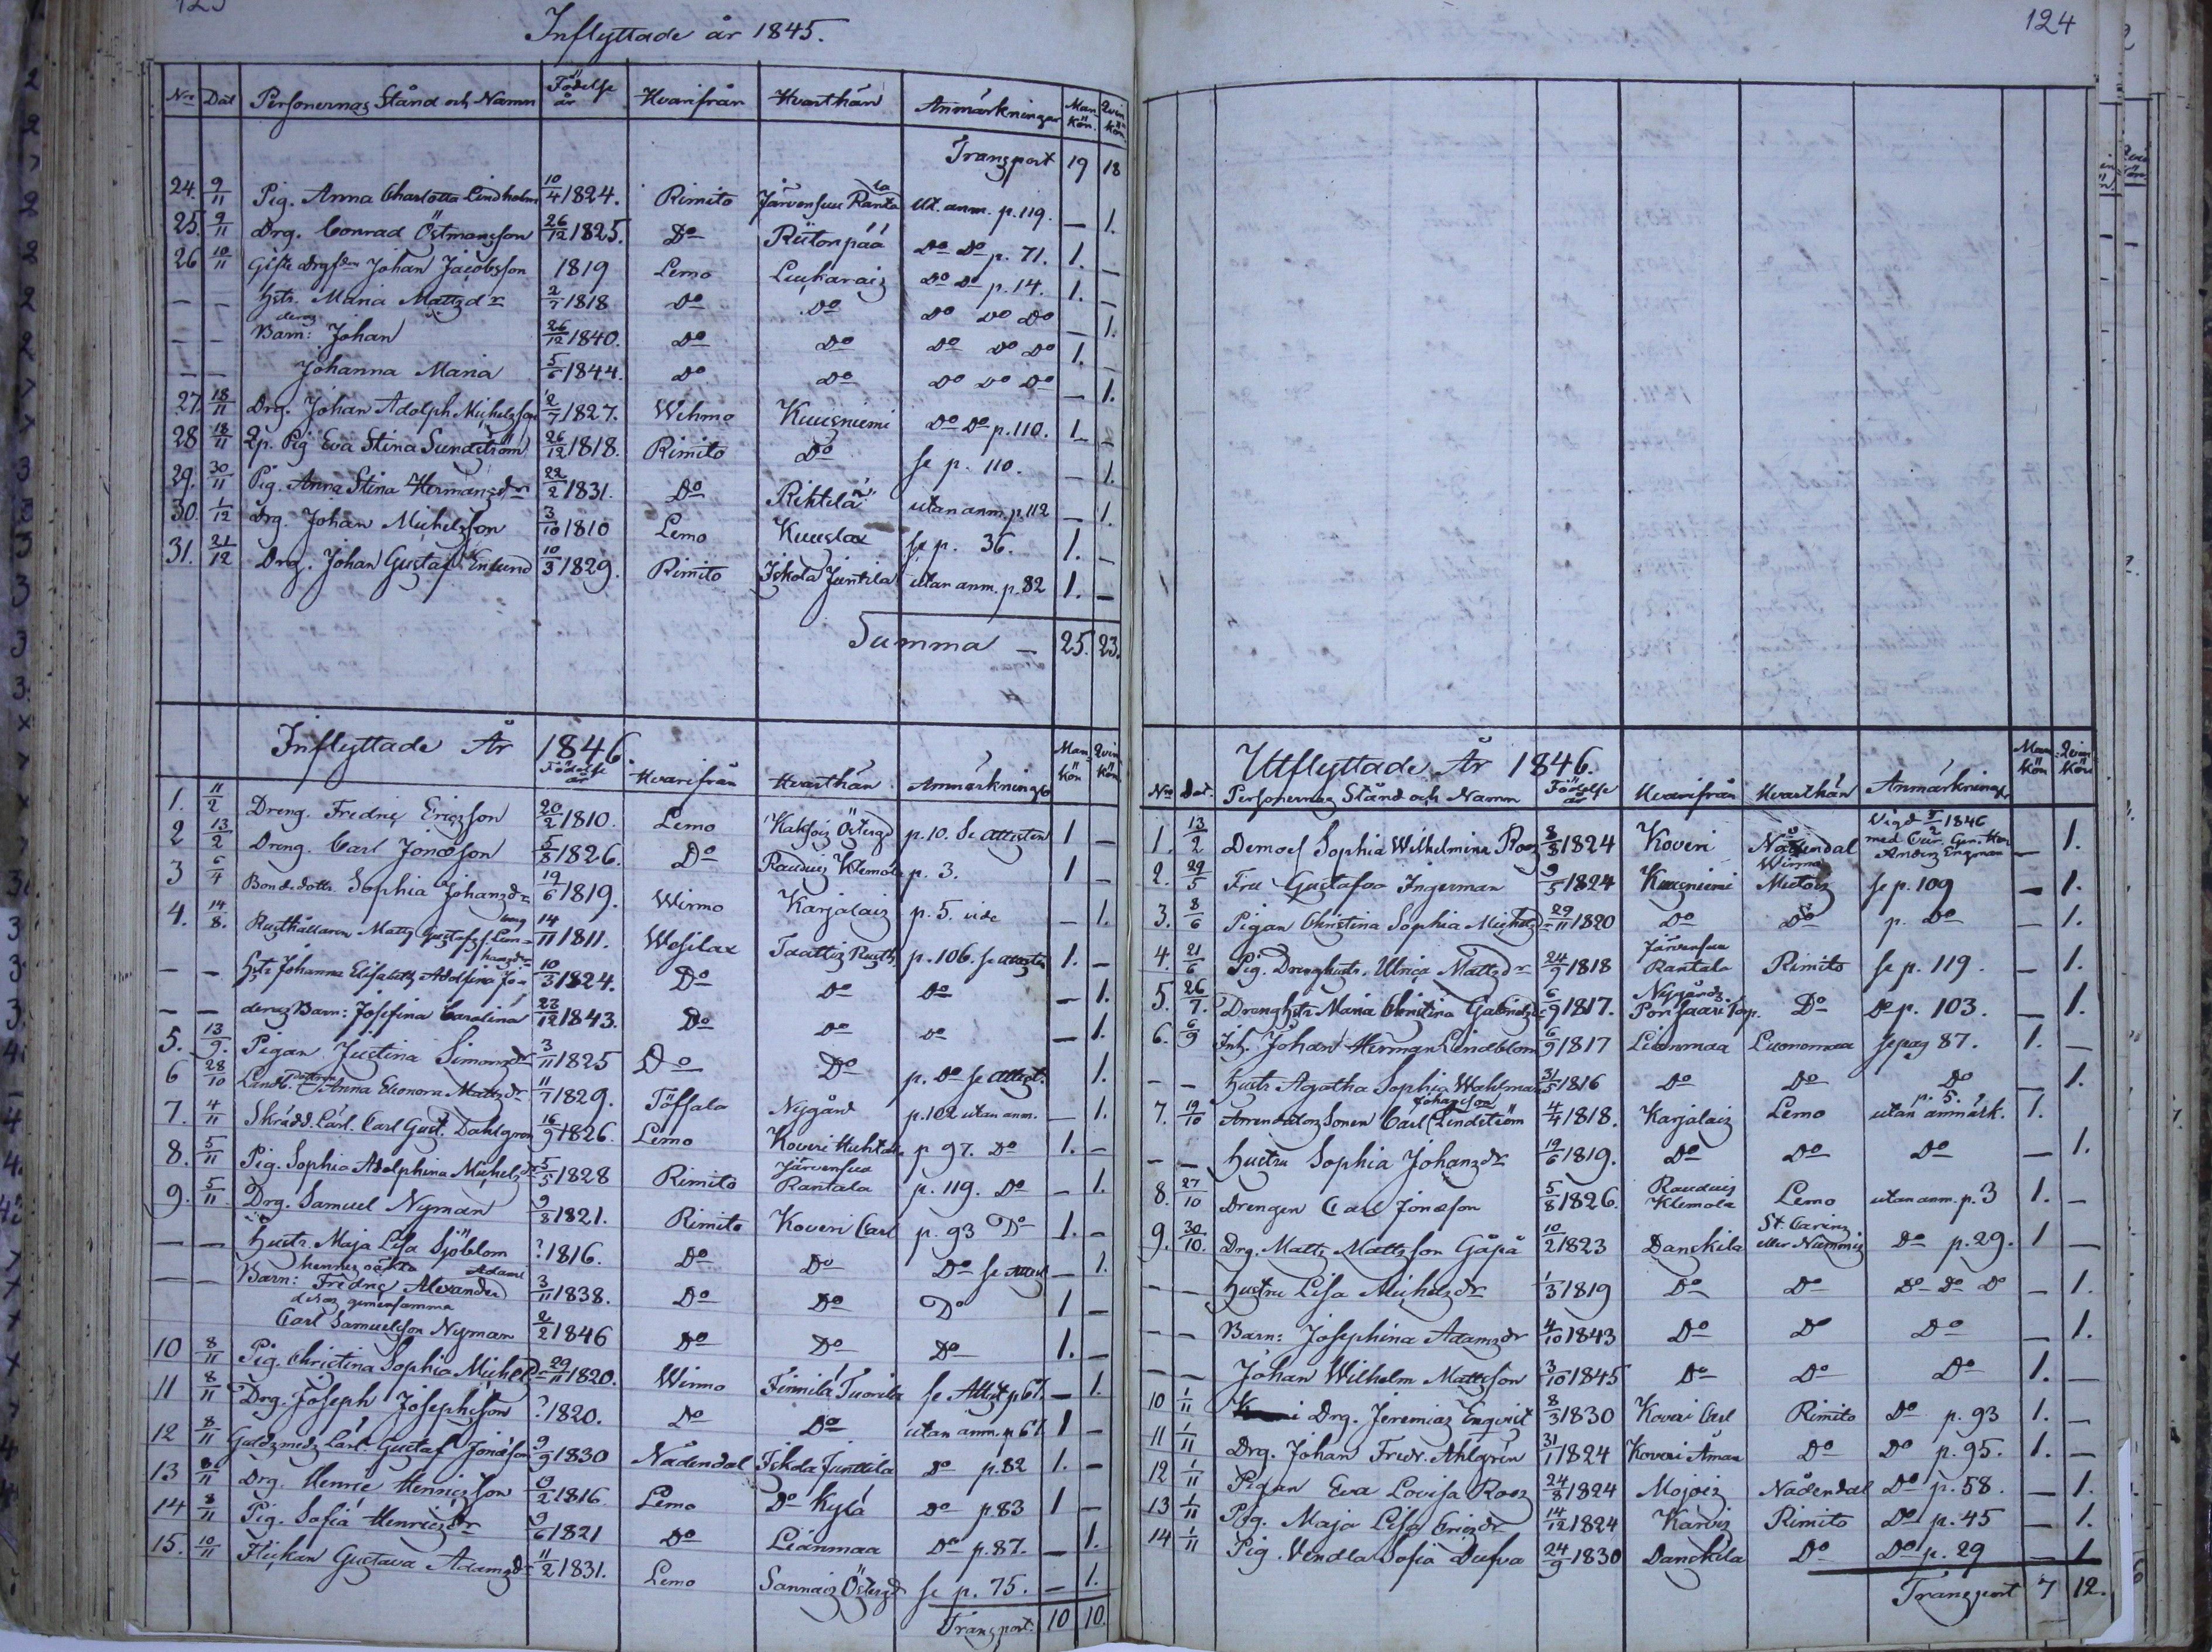 123
Inflyttade år 1845.
Nro Dat Personernas Stånd och Namn Födelse år Hvarifrån Hvarthän Anmärkningar Mankön. Qvinkön.
Transport 19 18
24. 9/11 Pig. Anna Charlotta Lindholm 10/4 1824. Rimito Järvensuu Rantala Ut. anm. p. 119. — 1.
25. 9/11 Drg. Conrad Östmansson 26/12 1825. Do Riitonpää Do Do p. 71. 1. —
26 10/11 Gifte Drgs Johan Jacobsson 1819 Lemo Luukarais Do Do p. 14. 1. —
— — Hstr. Maria Mattsdr 2/7 1818 Do Do Do Do Do — 1.
— — deras Barn: Johan 26/12 1840. Do Do Do Do Do 1. —
— — Johanna Maria 5/6 1844. Do Do Do Do Do — 1.
27. 18/11 Drg. Johan Adolph Michelsson 2/7 1827. Wehmo Kuusniemi Do Do p. 110. 1. —
28 18/11 Qp. Pig Eva Stina Sundström 26/12 1818. Rimito Do se p. 110. — 1.
29. 30/11 Pig. Anna Stina Hermansdr 22/2 1831. Do Rihtilä utan anm. p. 112 — 1.
30. 1/12 Drg. Johan Michelsson 3/10 1810 Lemo Kuuslax se p. 36. 1. —
31. 21/12 Drg. Johan Gustaf Enlund 10/3 1829. Rimito Iskola Junkila utan anm. p. 82 1. —
Summa — 25. 23.
Inflyttade År 1846.
Födelse år Hvarifrån Hvarthän Anmärkningar Mankön Qvinkön
1. 11/2 Dreng. Fredric Ericsson 20/2 1810. Lemo Kaksois Östergd p. 10. Se attesten 1 —
2 13/2 Dreng. Carl Jonasson 5/8 1826. Do Rauduis Klemola p. 3. 1 —
3 6/4 Bonded. dottr. Sophia Johansdr 19/6 1819. Wirmo Karjalais p. 5. vide — 1.
4. 14/8. Rusthållaren Matts Gustafss. Lemberg 14/11 1811. Wesilax Taattis Rusth. p. 106. se attesten 1. —
— — Hstr Johanna Elisabeth Adolfina Johansdr 10/3 1824. Do Do Do — 1.
— — deras Barn: Josefina Carolina 23/12 1843. Do Do Do — 1.
5. 13/9. Pigan Justina Simonsdr 3/11 1825 Do Do p. Do se attest. 1.
6 28/10 Landb. dottren Anna Eleonora Mattsdr 11/7 1829. Töffsala Nygård p. 102 utan anm. — 1.
7. 4/11 Skrädd. Lärl. Carl Gust. Dahlgren 16/9 1826. Lemo Koveri Huhtala p 97. Do 1. —
8. 5/11 Pig. Sophia Adolphina Michelsdr 5/5 1828 Rimito Järvensuu Rantala p. 119. Do — 1.
9. 5/11 Drg. Samuel Nyman 9/8 1821. Rimito Koveri Carl p. 93 Do 1. —
— — Hustr. Maja Lisa Sjöblom ? 1816. Do Do Do se attest — 1.
— — hennes oäkta Barn: Fredric Alexander Adams 3/11 1838. Do Do Do 1 —
deras gemensamma Carl Samuelsson Nyman 2/2 1846 Do Do Do 1. —
10 8/11 Pig. Christina Sophia Michelsdr 29/11 1820. Wirmo Finnilä Tuorila se Attest p 67. — 1.
11 8/11 Drg. Joseph Josephsson ? 1820. Do Do utan anm. p 67 1 —
12 8/11 Guldsmeds Lärl. Gustaf Jonasson 9/9 1830 Nådendal Iskola Junttila Do p. 82 1. —
13 8/11 Drg. Henric Henricsson 19/2 1816. Lemo Do Kylä Do p. 83 1 —
14 8/11 Pig. Sofia Henricsdr 9/6 1821 Do Liänmaa Do p. 87. — 1.
15. 10/11 Flickan Gustava Adamsdr 11/2 1831. Lemo Sannais Östergd se p. 75. — 1.
Transport. 10 10.
124
Utflyttade År 1846.
Nro Dat. Personernas Stånd och Namn Födelse år Hvarifrån Hvarthän Anmärkningar Mankön Qvinkön
1. 13/2 Demoel Sophia Wilhelmina Roos 8/5 1824 Koveri Nådendal Vigd 5/2 1846 med — 1.
2. 29/5 Fru Gustafva Ingerman 9/5 1824 Kuusniemi Wirmo Mietois se p. 109 — 1.
3. 8/6 Pigan Christina Sophia Michelsdr 29/11 1820 Do Do p. Do — 1.
4. 21/6 Pig. Drenghustr. Ulrica Mattsdr 24/9 1818 Järvensuu Rantala Rimito se p. 119. — 1.
5. 26/7. Drenghstr Maria Christina Gabrielsdr 6/9 1817. Nygårds Porssaari Torp. Do Do p. 103. — 1.
6. 6/9 Inh. Johan Herman Lindblom 6/9 1817 Liänmaa Luonnonmaa se pag 87. 1. —
— — Hustr Agatha Sophia Wahlman 31/5 1816 Do Do Do — 1.
7. 19/10 Arrendators Sonen Carl Johansson Lindström 4/4 1818. Karjalais Lemo p. 5. utan anmärk. 1.
— — Hustru Sophia Johansdr 19/6 1819. Do Do Do — 1.
8. 27/10 Drengen Carl Jonasson 5/8 1826. Rauduis Klemola Lemo utan anm. p. 3 1. —
9. 30/10. Drg. Matts Mattsson Gåpå 10/2 1823 Danskila St. Carins eller Nummis Do p. 29. 1 —
— — Hustru Lisa Michelsdr 1/3 1819 Do Do Do Do Do — 1.
— — Barn: Josephina Adamsdr 4/10 1843 Do Do Do — 1.
— — Johan Wilhelm Mattsson 3/10 1845 Do Do Do 1. —
10 1/11 Drg. Jeremias Enqvist 8/3 1830 Koveri Carl Rimito Do p. 93 1. —
11 1/11 Drg. Johan Fredr. Ahlgrén 31/1 1824 Koveri Åman Do Do p. 95. 1. —
12 1/11 Pigan Eva Lovisa Roos 24/8 1824 Mojois Nådendal Do p. 58. — 1.
13 1/11 Pig. Maja Lisa Ericsdr 14/12 1824 Karvis Rimito Do p. 45 — 1.
14 1/11 Pig. Vendla Sofia Dufva 24/9 1830 Danskila Do Do p. 29 — 1
Transport 7 12.